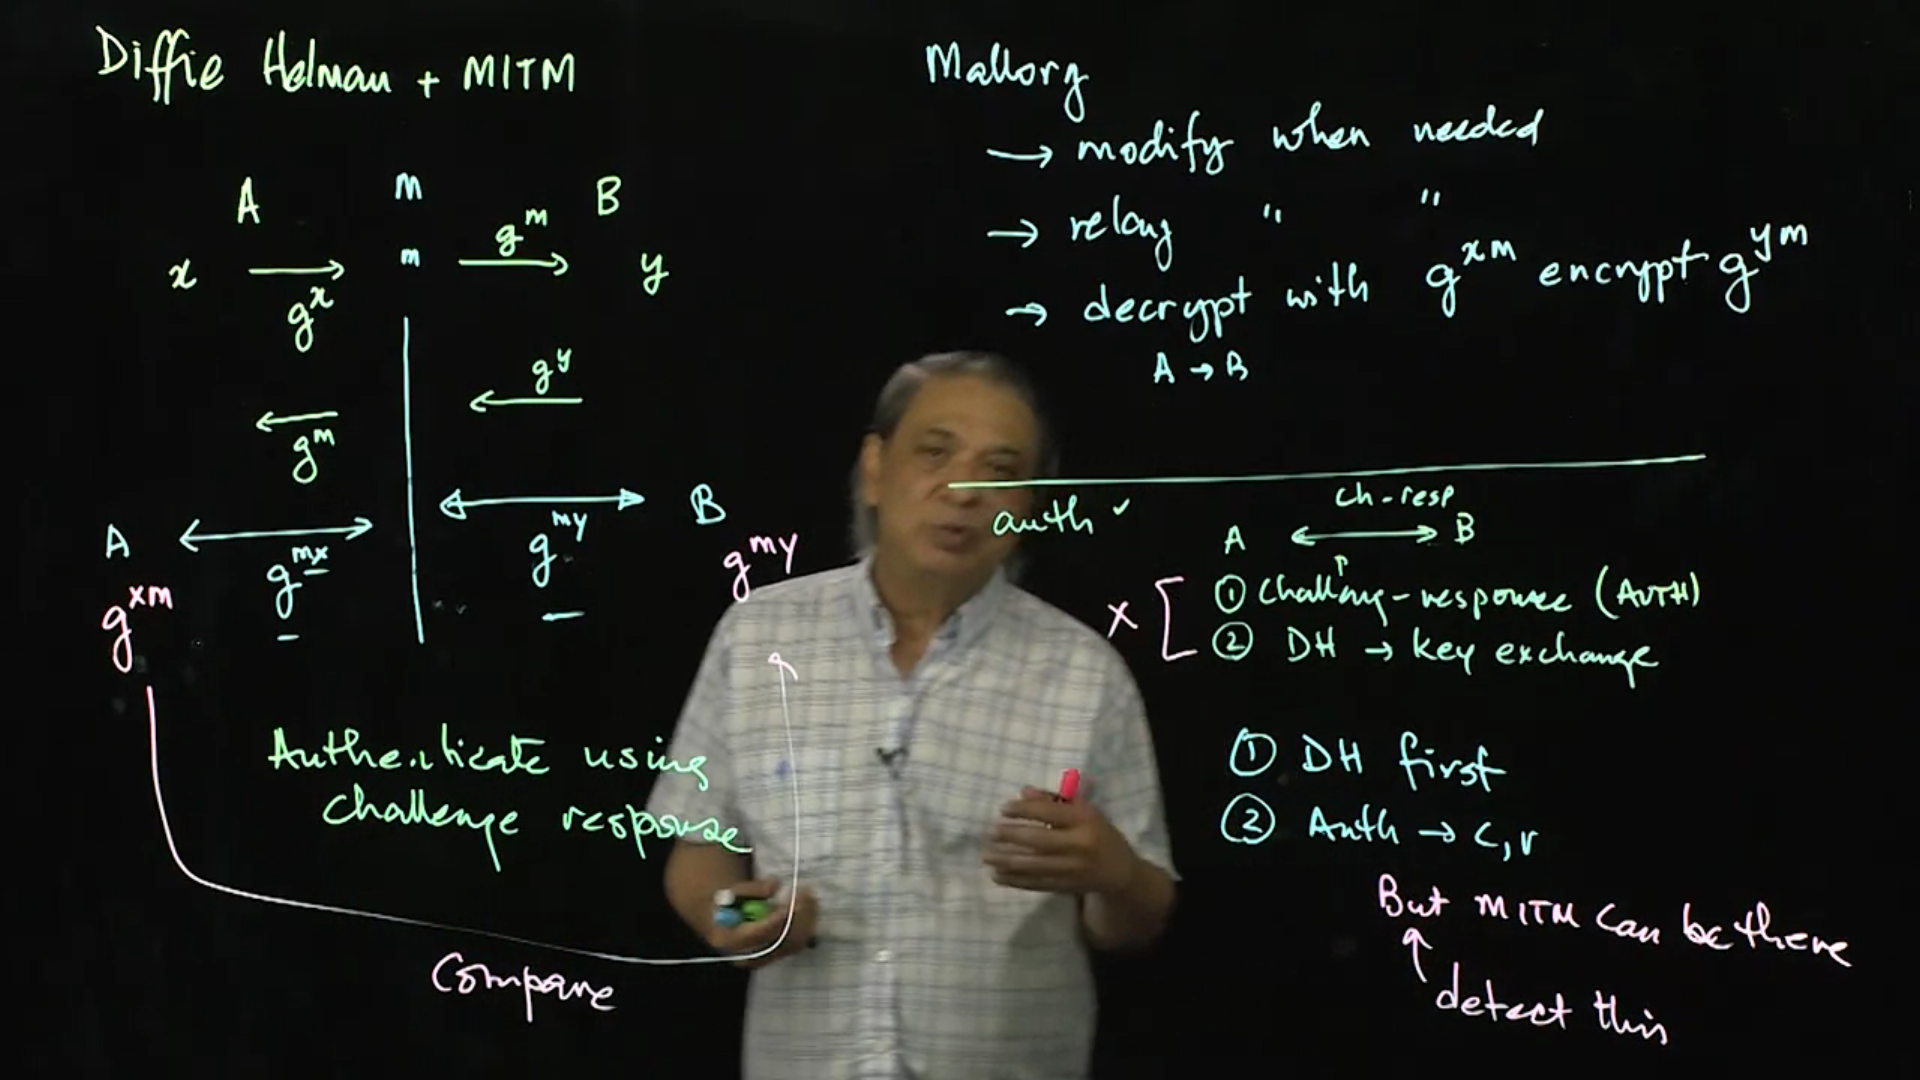 Diffie Helman + MITM
A m B
x → m → g^m y
g^x
← g^y
← g^m
A ↔ ↔ B
g^mx g^my g^my
g^xm
Authenticate using
challenge response
Compare
Mallory
→ modify when needed
→ relay " "
→ decrypt with g^xm encrypt g^ym
A → B
auth ✓ ch-resp
A ↔ B
x [ ① Challeng-response (AUTH)
② DH → key exchange
① DH first
② Auth → c, r
But MITM can be there
↑ detect this